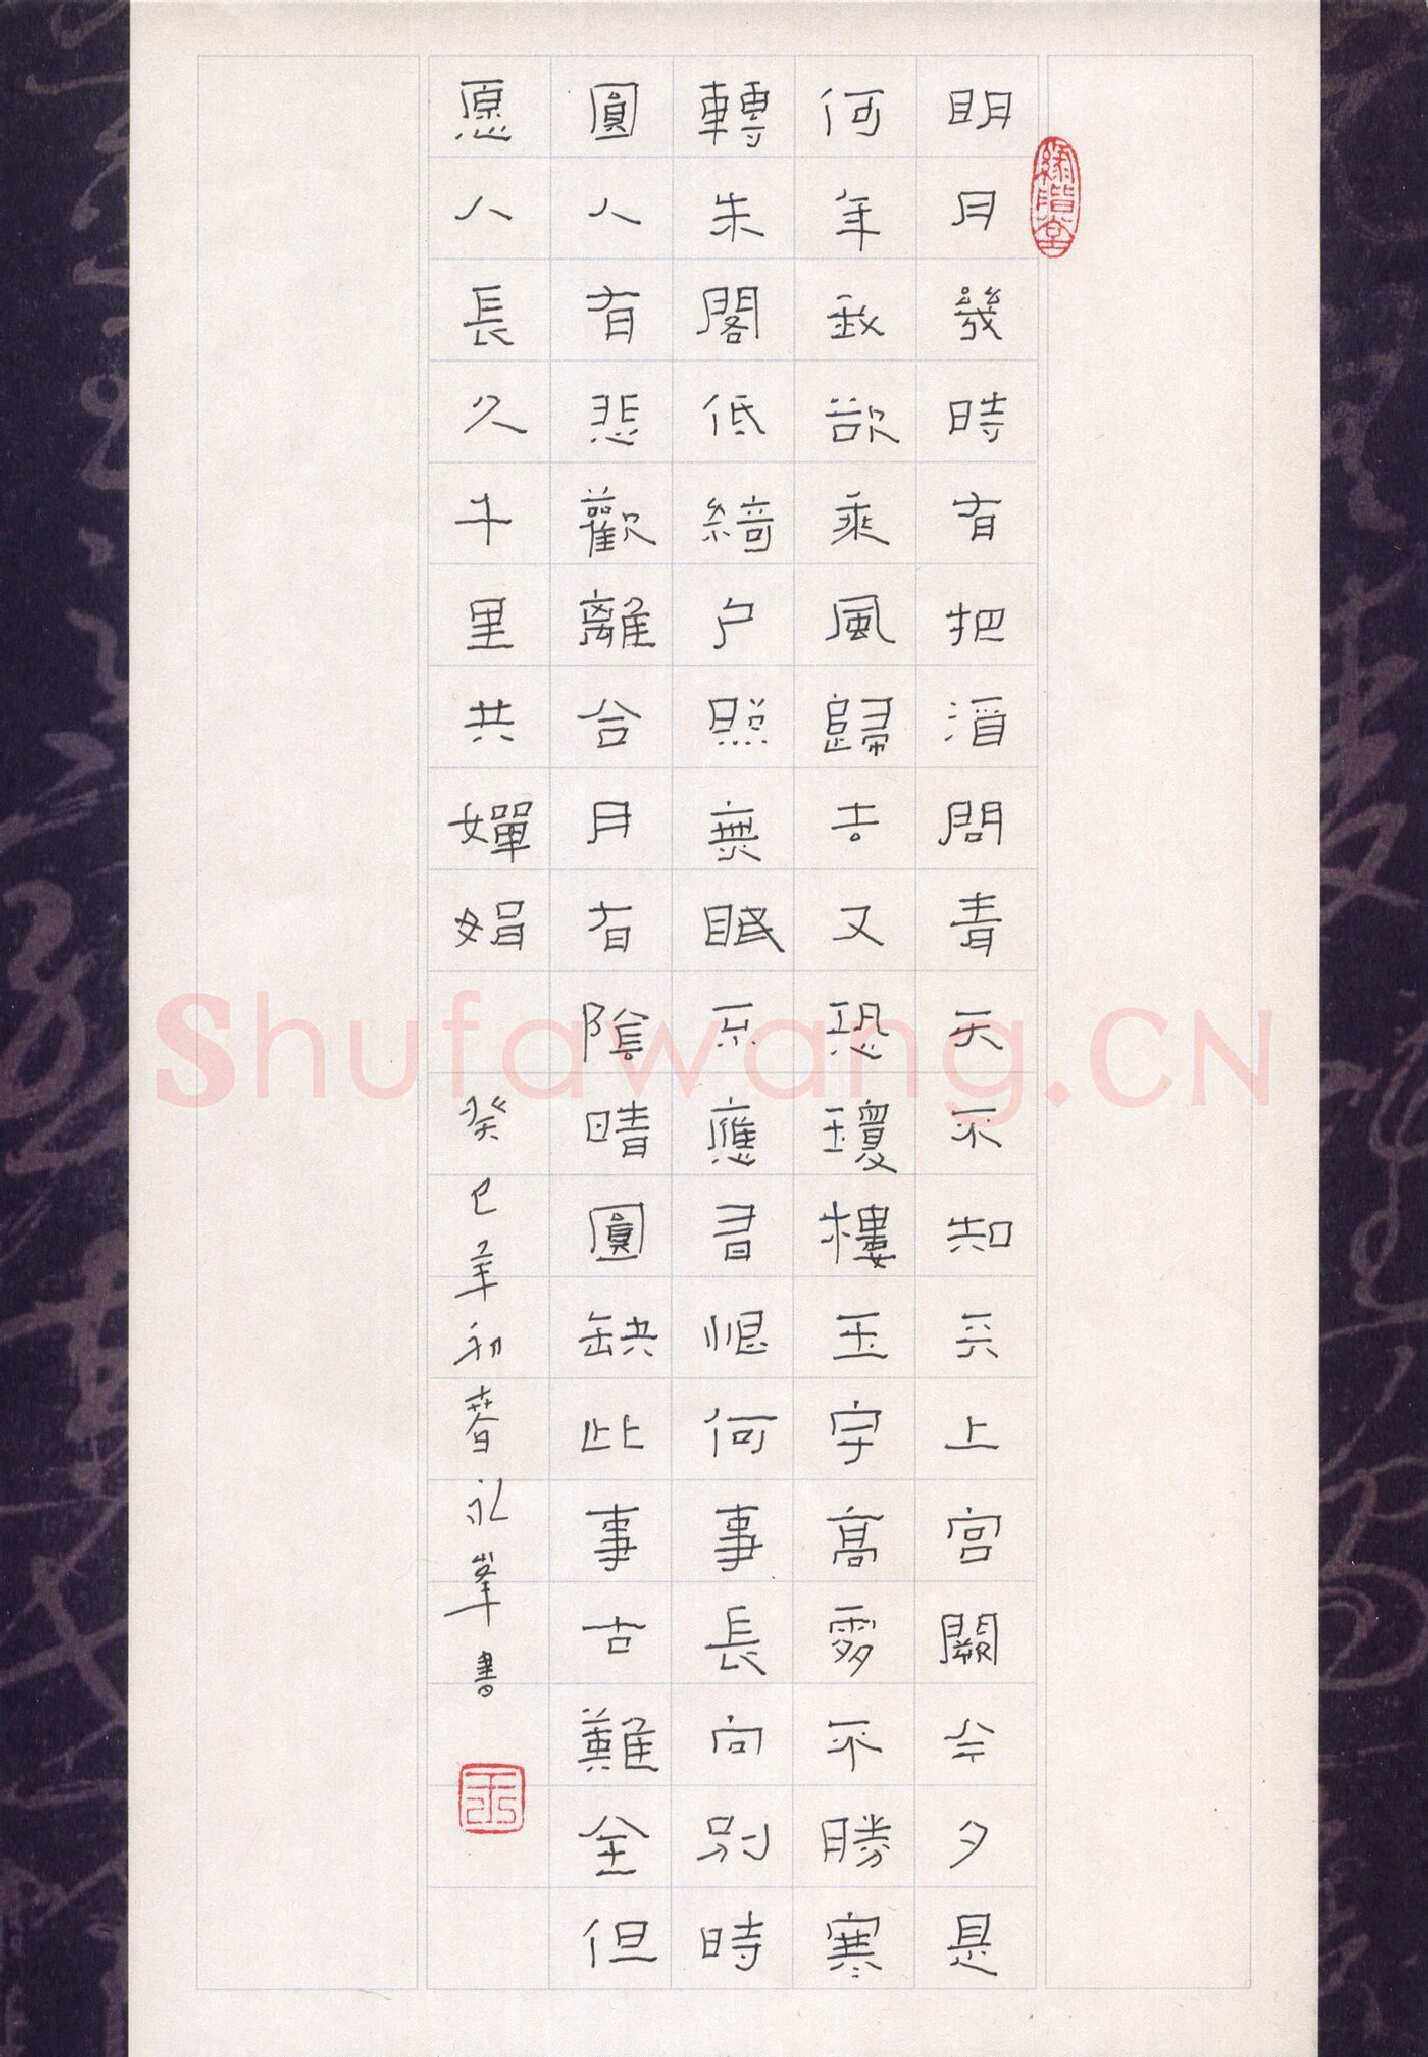 明月幾時有把酒問青天不知天上宮闕今夕是
何年我欲乘風歸去又恐瓊樓玉宇高處不勝寒
轉朱閣低綺户照無眠不應有恨何事長向別時
圓人有悲歡離合月有陰晴圓缺此事古難全但
愿人長久千里共嬋娟
癸巳年初春永峯書
Shufawang.CN